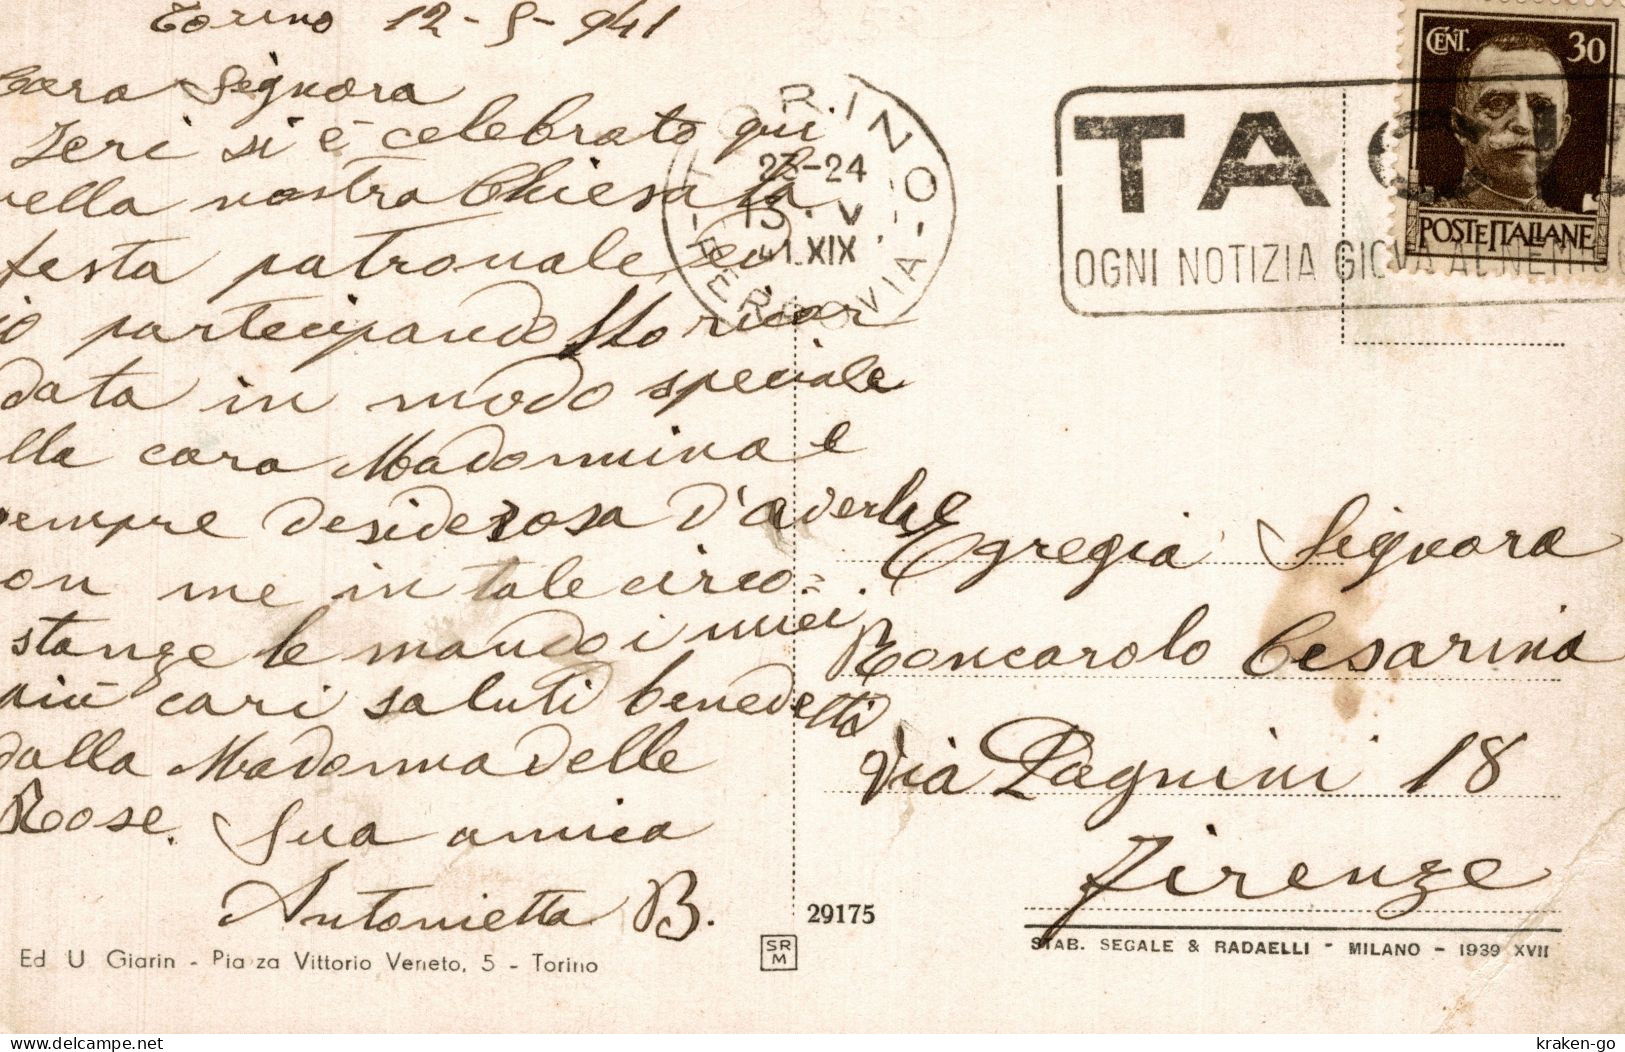 Torino 12-5-941
Cara Signora
Ieri si è celebrato qui
nella nostra Chiesa la
festa patronale, ed
io partecipando l'ho ricor
data in modo speciale
alla cara Madonnina e
sempre desiderosa d'averla
con me in tale circo=
stanze le mando i miei
più cari saluti benedetti
dalla Madonna delle
Rose. Sua amica
Antonietta B.
Ed U Giarin - Piazza Vittorio Veneto, 5 - Torino
TORINO
23-24
13. V
41.XIX
FERROVIA
TACI
OGNI NOTIZIA GIOVA AL NEMICO
CENT. 30
POSTE ITALIANE
Egregia Signora
Roncarolo Cesarina
Via Pagnini 18
Firenze
29175
SR
M
STAB. SEGALE & RADAELLI - MILANO - 1939 XVII
delcampe.net
kraken-go